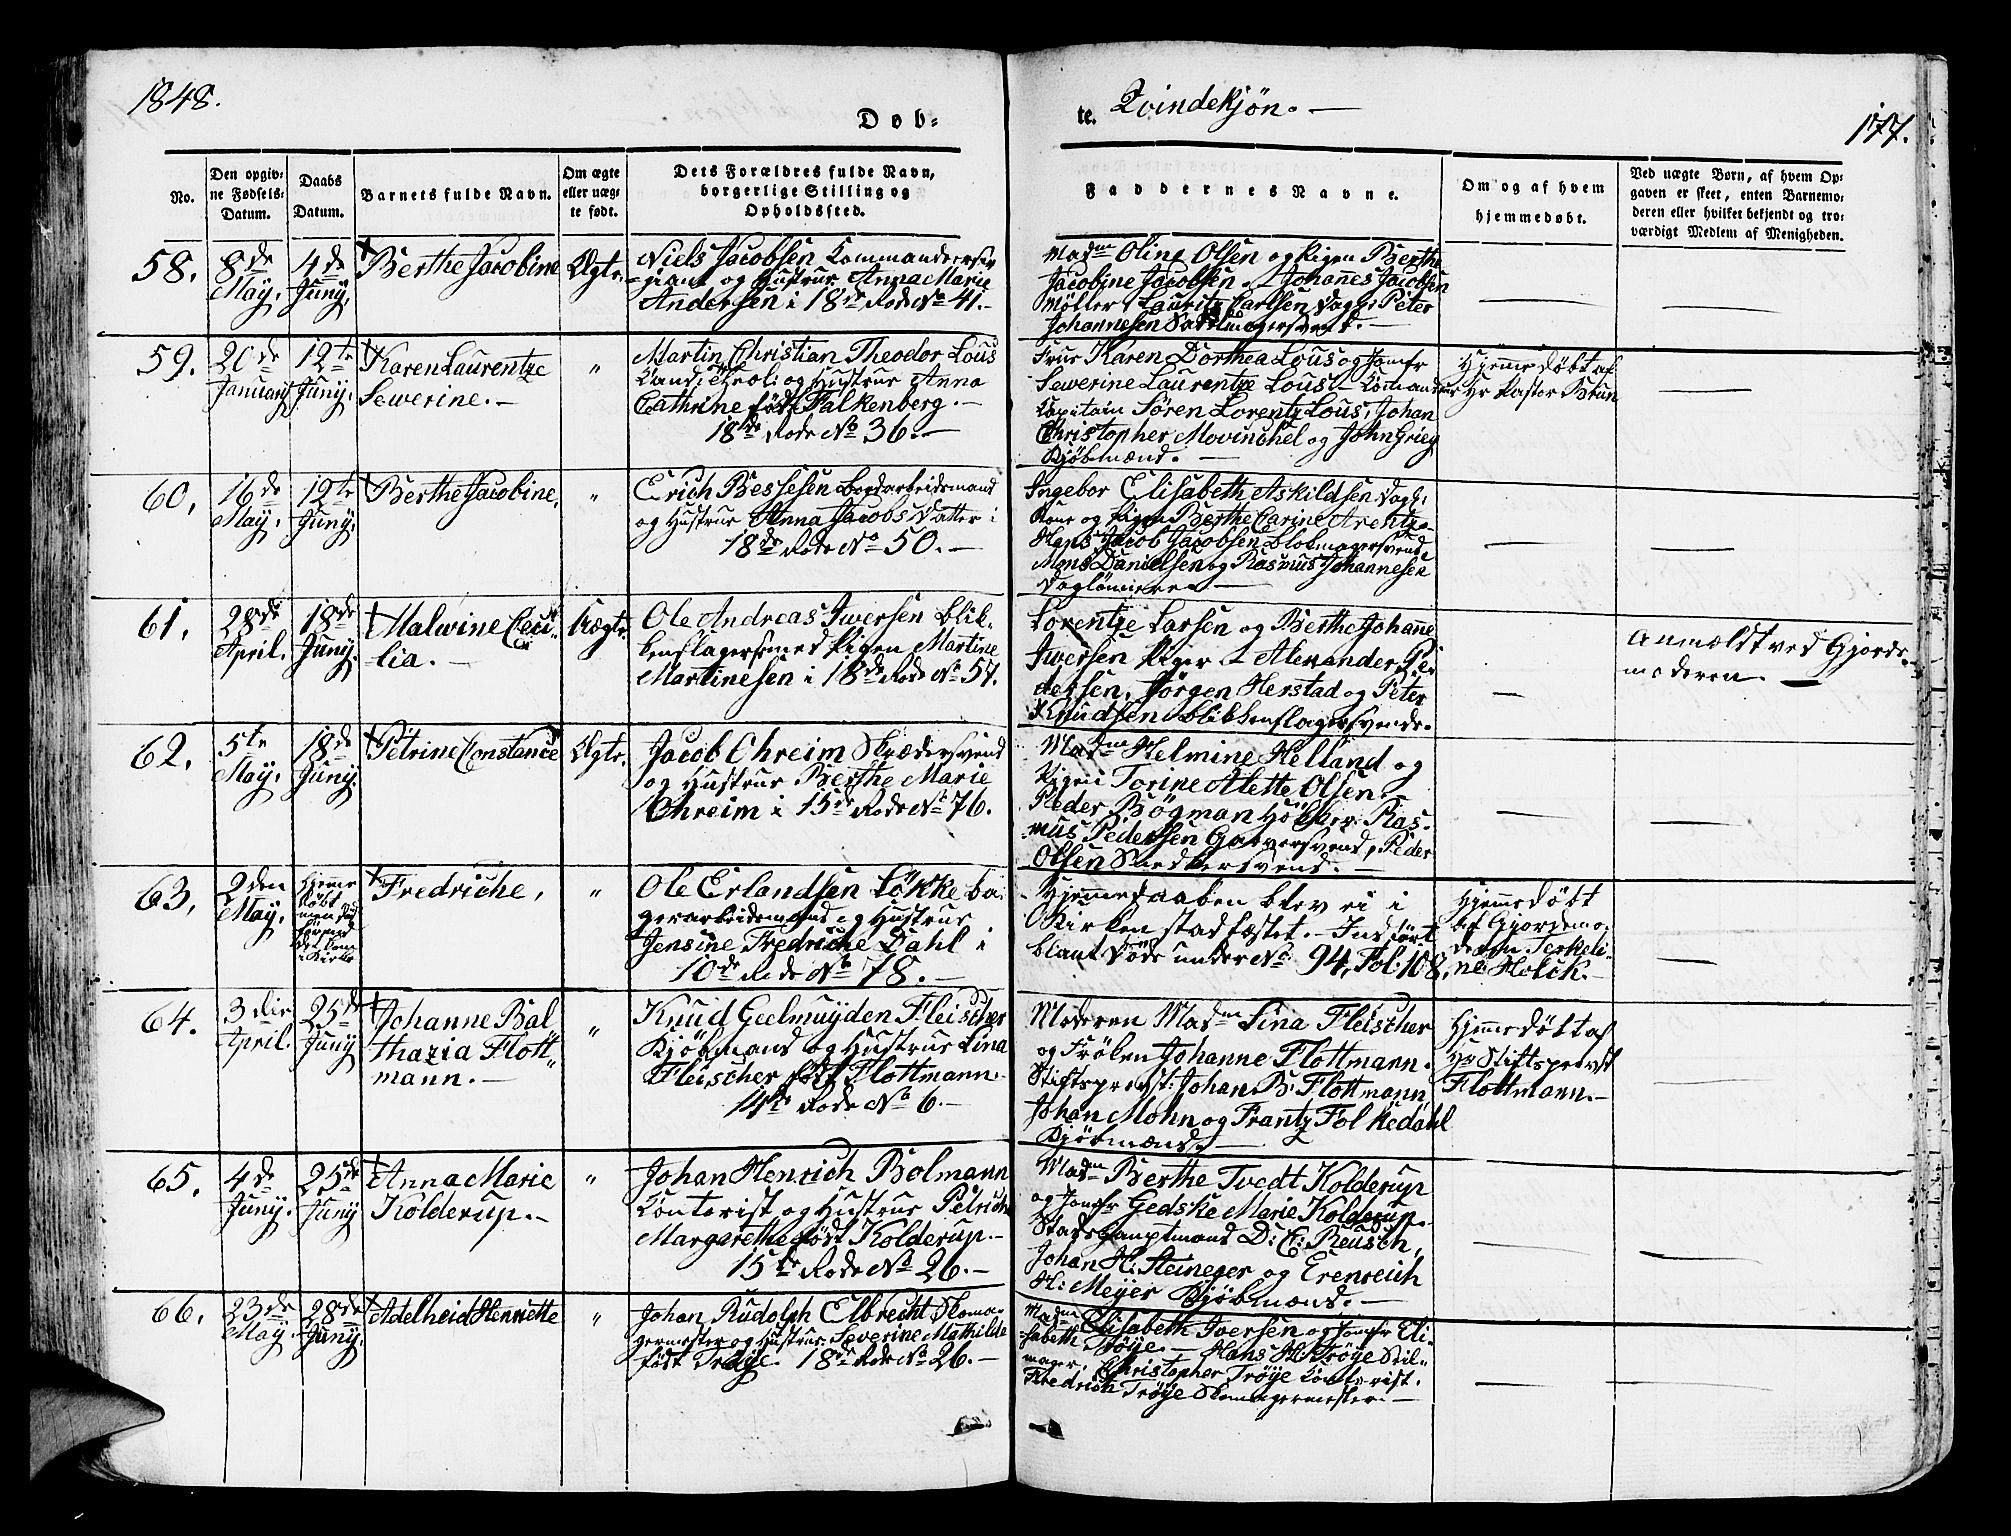 1848.
Døb-
te. Qvindekjøn. —
177.
No.
Den opgiv-
ne Fødsels-
Datum.
Daabs
Datum.
Barnets fulde Navn.
Om ægte
eller uæg-
te født.
Dets Forældres fulde Navn,
borgerlige Stilling og
Opholdssted.
Faddernes Navne.
Om og af hvem
hjemmedøbt.
Ved uægte Børn, af hvem Op-
gaven er skeet, enten Barnemo-
deren eller hvilket bekjendt og tro-
værdigt Medlem af Menigheden.
58.
8de
May,
4de
Juny,
Berthe Jacobine
Ægte.
Niels Jacobsen Commandeerser-
giant og Hustrue Anna Marie
Andersen i 18de Rode No 41. —
Madm Oline Olsen og Pigen Berthe
Jacobine Jacobsen – Johannes Jacobsen
Møller, Lauritz Carlsen Dagl: Peter
Johannesen Sadelmagersvend. —
59.
20de
January
12te
Juny,
Karen Laurentze
Sewerine. —
"
Martin Christian Theodor Lous
Cand: Theoli og Hustrue Anna
Cathrine født Falkenberg. —
18de Rode No 36. —
Frue Karen Dorthea Lous og Jomfr
Sewerine Laurentze Lous – Commandeur
Capitain Sören Lorentz Lous, Johan
Christopher Mowinchel og John Grieg
Kjöbmænd. —
Hjemmedøbt af
Hr Pastor Brun
60.
16de
May,
12te
Juny,
Berthe Jacobine,
"
Erich Bessesen Bordarbeidsmand
og Hustrue Anna Jacobs Datter i
18de Rode No 50. —
Ingebor Elisabeth Askildsen Dagl:
Kone og Pigen Berthe Carine Arentze-
Hans Jacob Jacobsen Blokmagersvend
Mons Danielsen og Rasmus Johannesen
Daglönnere —
61.
28de
April.
18de
Juny,
Malwine Ceci-
lia. —
Uægte
Ole Andreas Iwersen Blik-
kenslagersvend Pigen Martine
Martinesen i 18de Rode No 57.
Lorentze Larsen og Berthe Johanne
Iwersen Piger – Alexander Pe-
dersen, Jörgen Herstad og Peter
Knudsen Blikkenslagersvende.
Anmældt ved Gjorde-
moderen. —
62.
5te
May,
18de
Juny,
Petrine Constance
Ægte.
Jacob Ohreim Skrædersvend
og Hustrue Berthe Marie
Ohreim i 15de Rode No 76.
Madm Helmine Helland og
Pigen Torine Alette Olsen.
Peder Bögman Hökker, Ras-
mus Pedersen Garversvend, Peder
Olsen Snedkersvend. —
63.
2den
May,
Hjemme
døbt
men Død
förend
det kom
i Kirke
Fredriche,
"
Ole Erlandsen Lökke Ba-
gerarbeidsmand og Hustrue
Jensine Fredriche Dahl i
10de Rode No 78. —
Hjemmedaaben blev ei i
Kirken stadfæstet. – Indfört
blant Döde under No 94, Fol: 108,
Hjemmedøbt
af Gjordemo-
deren Terkeli-
ne Holck. —
64.
3die
April.
25de
Juny
Johanne Bal
thazia Flott-
mann. —
"
Knud Geelmuyden Fleischer
Kjöbmand og Hustrue Lina
Fleischer født Flottmann.
14de Rode No 6. —
Moderen Madm Lina Fleischer
og Frölen Johanne Flottmann.
Stiftsprovst: Johan B: Flottmann
Johan Mohn og Frantz Folkedahl
Kjöbmænd. —
Hjemmedøbt af
Hr Stiftsprovst
Flottmann. —
65.
4de
Juny.
25de
Juny
Anna Marie
Kolderup. —
"
Johan Henrich Bolmann
Contorist og Hustrue Petriche
Margarethe født Kolderup. —
15de Rode No 26. —
Madm Berthe Tvedt Kolderup
og Jomfr Gedske Marie Kolderup.
Stadshauptmand D: C: Reusch,
Johan H: Steineger og Erenreich
H: Meyer Kjöbmænd. —
66.
23de
May.
28de
Juny,
Adelheid Henriette
"
Johan Rudolph Elbrecht Skoma-
germester og Hustrue Severine Mathilde
født Tröye. 18de Rode No 26. —
Madm Elisabeth Iversen og Jomfr Eli-
sabeth Tröye. – Hans H: Tröye Seil-
mager, Christopher Tröye Contorist,
Fredrich Tröye Skomagermester. —